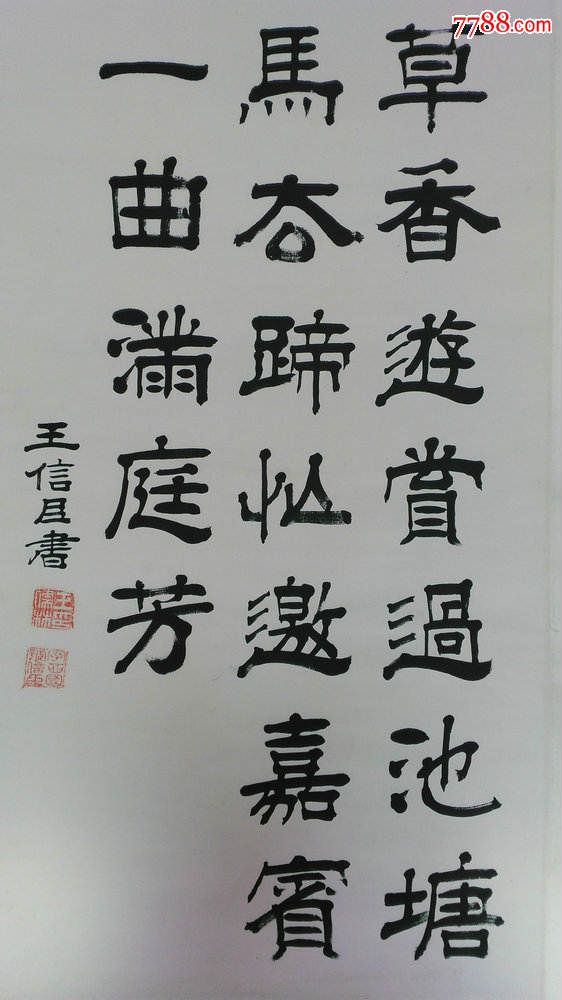 7788.com
草香遊賞過池塘
馬去蹄忙邀嘉賓
一曲滿庭芳
王信書